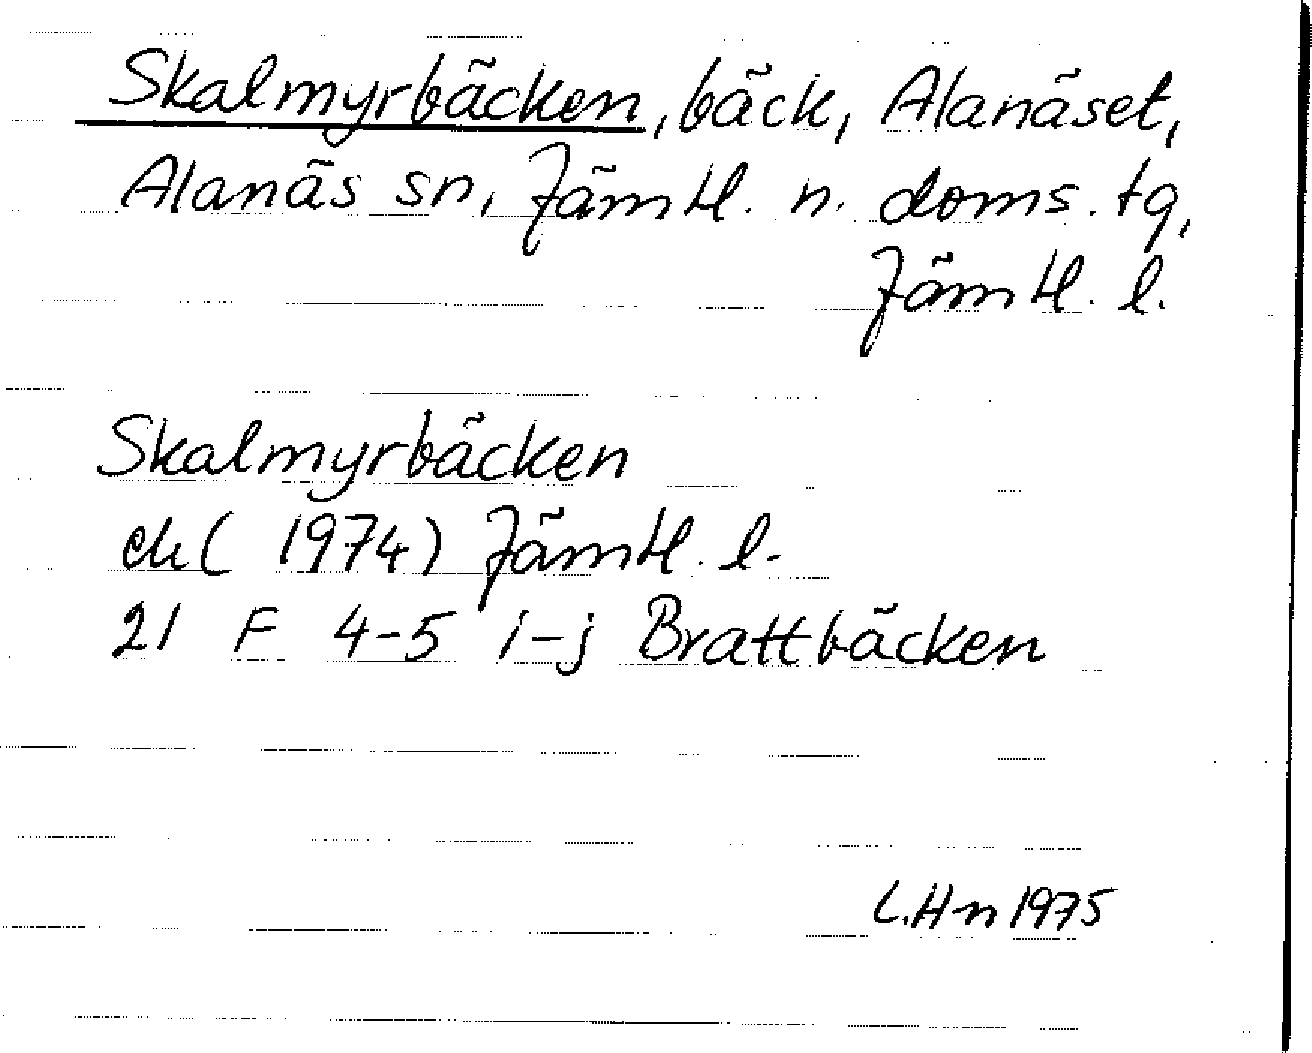 Skalmyrbäcken, bäck, Alanäset,
Alanäs sn, Jämtl. n. doms. tg,
Jämtl. l.
Skalmyrbäcken
ek (1974) Jämtl. l.
21 F 4-5 i-j Brattbäcken
L.Hn 1975